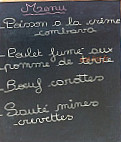 Menu
- Poisson a la crème
combava
- Poulet fumé aux
pomme de terre
- Boeuf carottes
- Sauté mines
crevettes